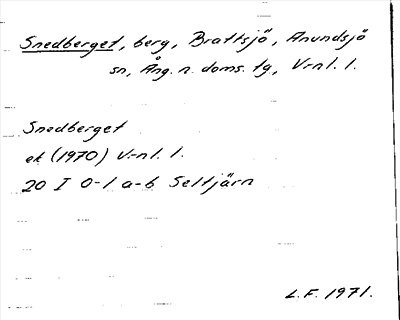 Snedberget, berg, Brattsjö, Anundsjö
sn, Ång. n. doms. tg, Vrnl. l.
Snedberget
ek (1970) Vrnl. l.
20 I 0-1 a-b Seltjärn
L.F. 1971.